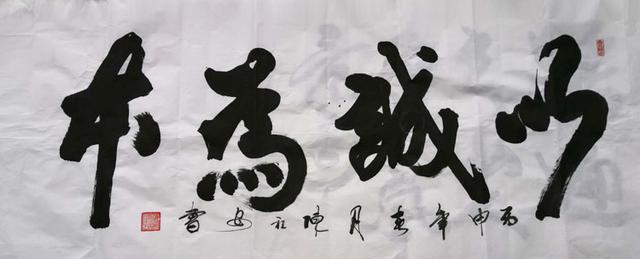 以誠為本
丙申年春月陳社安書